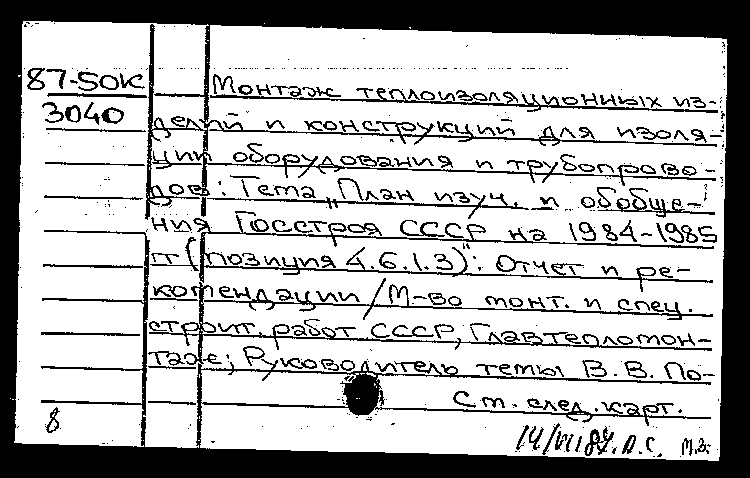 87-50К Монтаж теплоизоляционных из-
3040
делий и конструкций для изоля-
ции оборудования и трубопрово-
дов: Тема „План изуч. и обобще-
ния Госстроя СССР на 1984-1985
гг (позиция 4.6.1.3)": Отчет и ре-
комендации/М-во монт. и спец.
строит. работ СССР, Главтепломон-
таж; Руководитель темы В.В. По-
См. след. карт.
8
14/VII 87. Л.С. М.З.